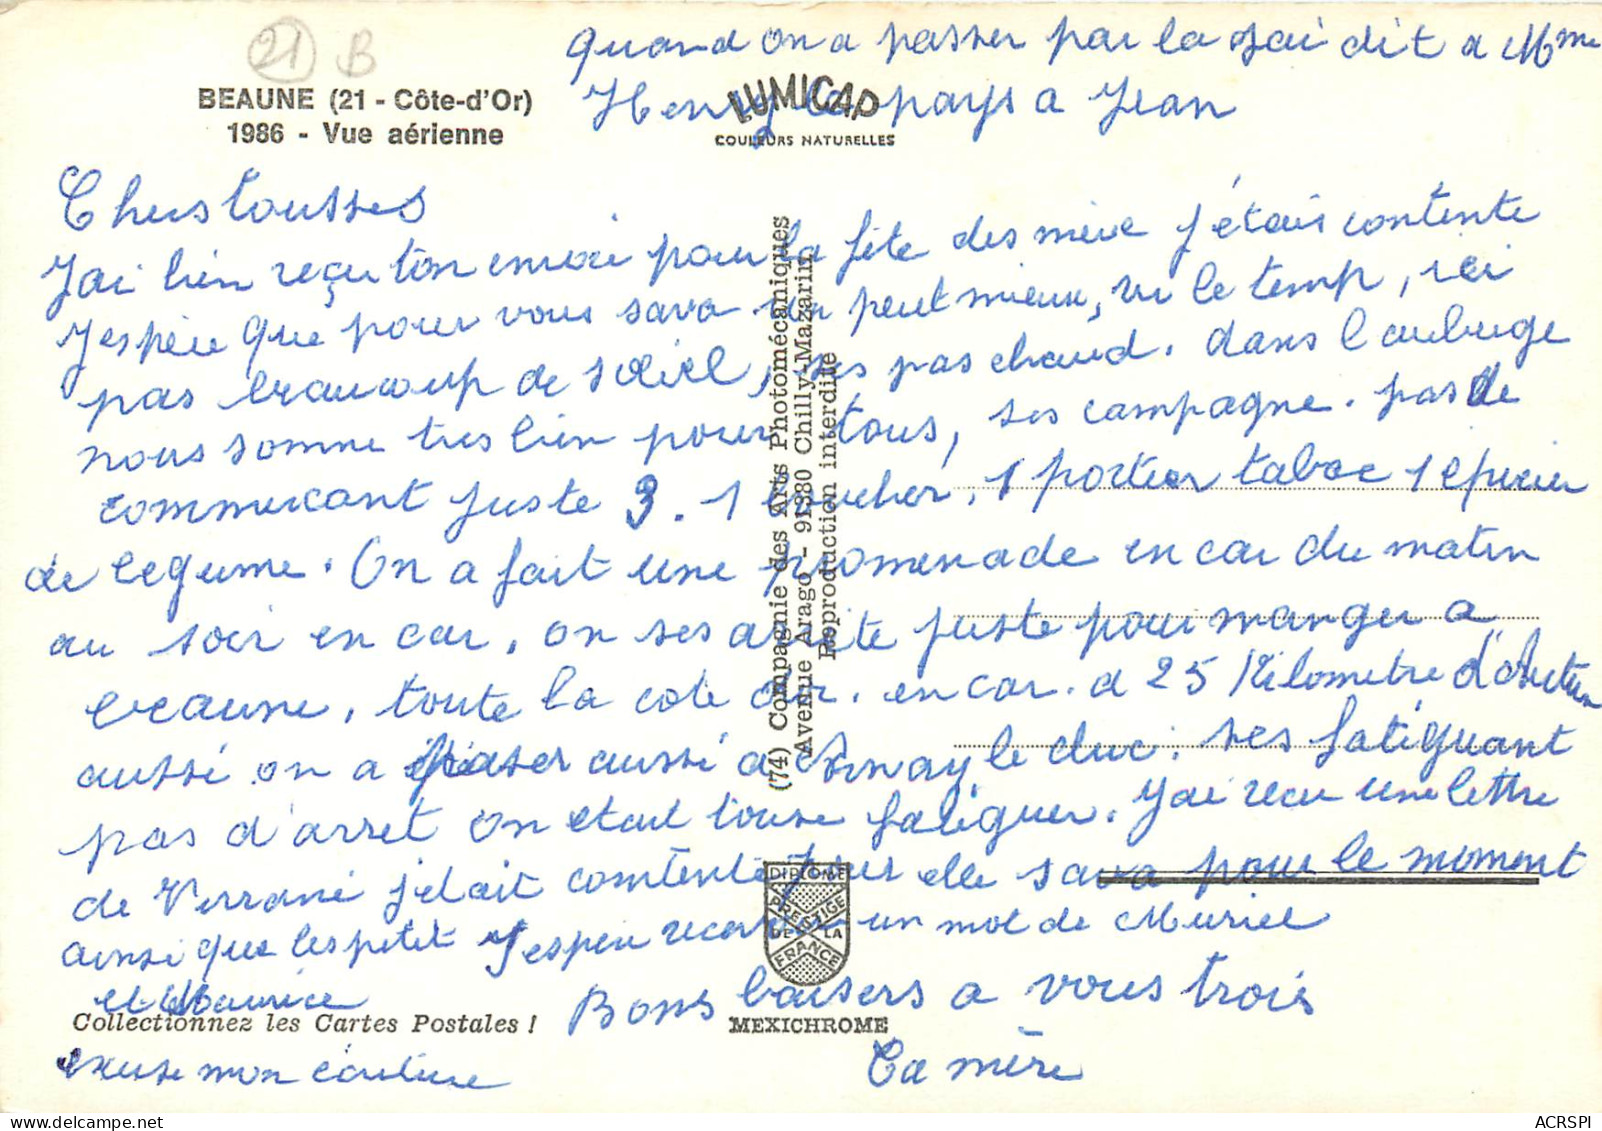 21 B
BEAUNE (21 - Côte-d'Or)
1986 - Vue aérienne
quand on a passer par la jai dit a Mme
Henry le pays a Jean
LUMICAP
COULEURS NATURELLES
Chers tousses
Jai bien reçu ton envoie pour la fête des mère j'étais contente
Jespère que pour vous sava un peut mieux, vu le temp, ici
pas beaucoup de soleil, ses pas chaud. dans l'auberge
nous somme tres bien pour tous, ses campagne. pas de
commercant juste 3. 1 boucher, 1 portier tabac 1 epicier
de legume. On a fait une promenade en car du matin
au soir en car, on ses arrete juste pour manger a
beaune, toute la cote d'or. en car. a 25 Kilometre d'
aussi on a passer aussi a Arnay le duc. ses fatiguant
pas d'arret on etait touse fatiguer. Jai recu une lettre
de jetait contente pour elle sava pour le moment
ainsi que les petit Jespere recevoir un mot de Muriel
et Maurice
Bons baisers a vous trois
excuse mon écriture
Ta mère
(74) Compagnie des Arts Photomécaniques
Avenue Arago - 91380 Chilly-Mazarin
Reproduction interdite
DIPLOME
PRESTIGE
DE LA
FRANCE
MEXICHROME
Collectionnez les Cartes Postales !
ACRSPI